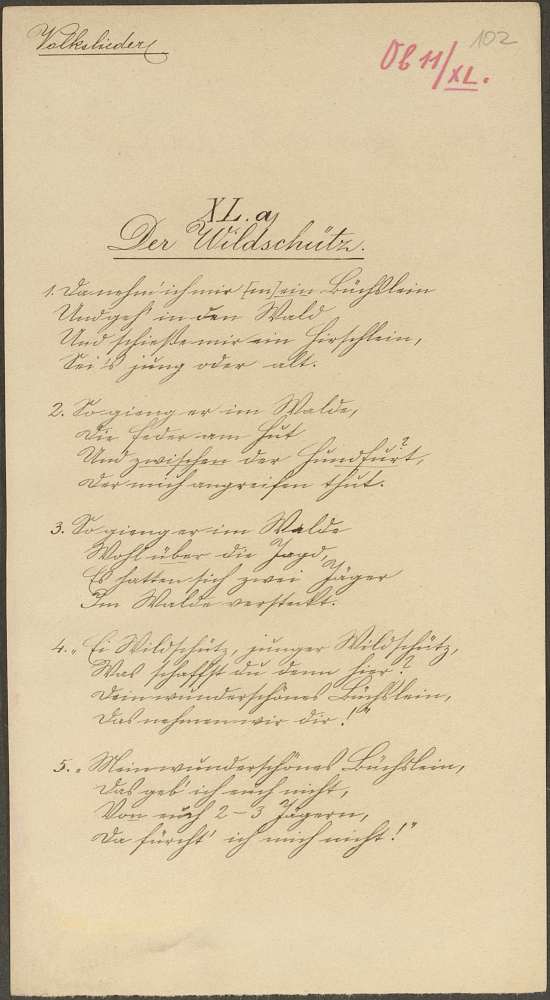 Volkslieder
102
Ob 11/XL.
XL. a,
Der Wildschütz.
1. Da nehm' ich mir [m]ein Büchslein
Und geh' in den Wald
Und schieße mir ein Hirschlein,
Sei's jung oder alt.
2. So gieng er im Walde,
Die Feder am Hut
Und zwischen der Hundfurt,?
Der mich angreifen thut.
3. So gieng er im Walde
Wohl über die Jagd,
Es hatten sich zwei Jäger
Im Walde versteckt.
4. „Ei Wildschütz, junger Wildschütz,
Was schaffst du denn hier?
Dein wunderschönes Büchslein,
Das nehmen wir dir!"
5. „Mein wunderschönes Büchslein,
Das geb' ich euch nicht,
Von euch 2–3 Jägern,
Da fürcht' ich mich nicht!"